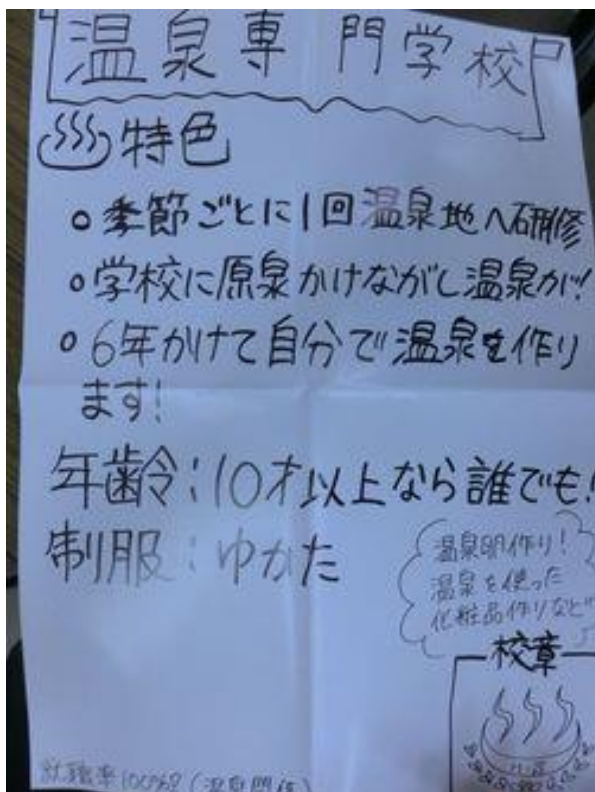 温泉専門学校
特色
○ 季節ごとに1回温泉地へ研修
○ 学校に原泉かけながし温泉が!
○ 6年かけて自分で温泉を作り
ます!
年齢:10才以上なら誰でも!
制服:ゆかた
温泉卵作り!
温泉を使った
化粧品作りなど
校章
就職率100%?(温泉関係)